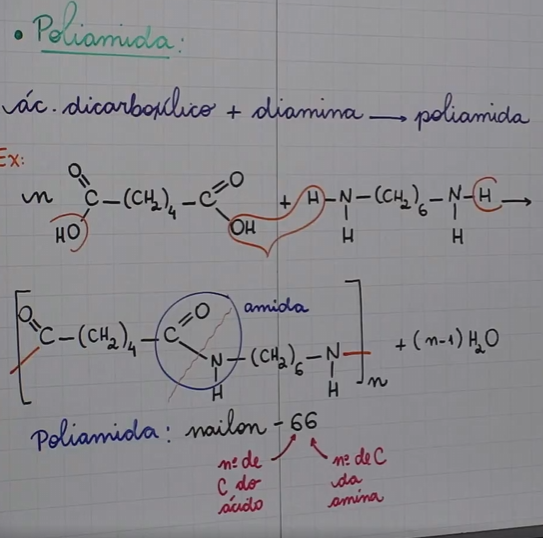 • Poliamida:
ác. dicarboxílico + diamina → poliamida
Ex:
n HO-C(=O)-(CH₂)₄-C(=O)-OH + H-N(H)-(CH₂)₆-N(H)-H →
[C(=O)-(CH₂)₄-C(=O)-N(H)-(CH₂)₆-N(H)]n + (n-1)H₂O
amida
Poliamida: nailon - 66
nº de C do ácido
nº de C da amina